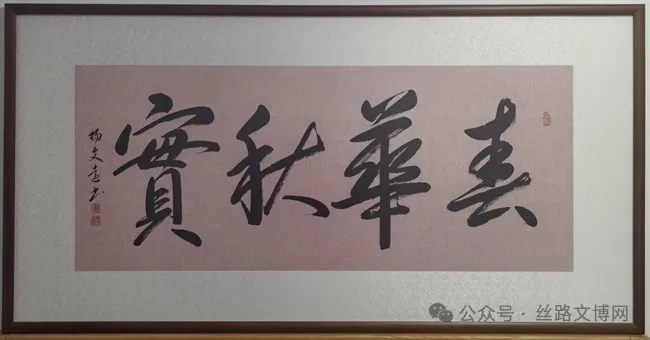 春華秋實
楊文遠书
公众号 · 丝路文博网